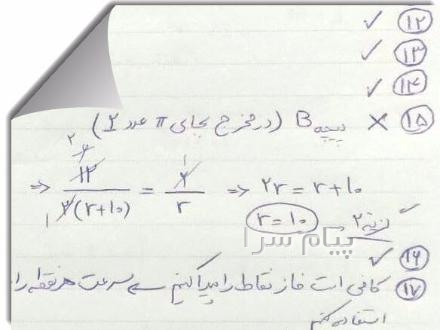 ۱۲ ✓
۱۳ ✓
۱۴ ✓
۱۵ ✗ پیچه B (در مخرج بجای π عدد ۲)
⇒ ۱۲ / ۳(r+10) = ۲ / r ⇒ ۲r = r+10
r=10 گزینه ۲ ✓
پیام سرا
۱۶ ✓
۱۷ کافی است فاز نقاط را پیدا کنیم سپس سرعت هر نقطه را
استفاده کنیم